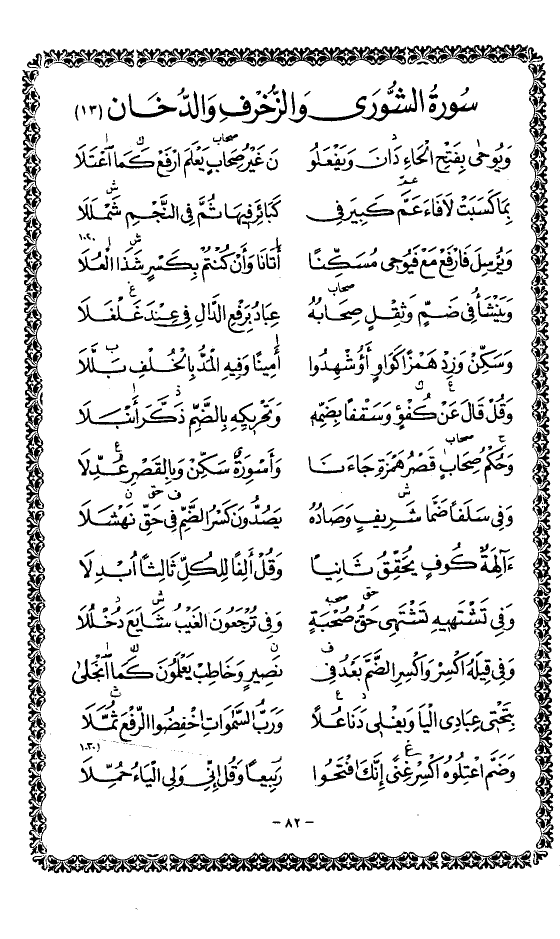 سُورَةُ الشُّورَى وَالزُّخْرُفِ وَالدُّخَانِ (١٣)
وَيُوحَى بِفَتْحِ الْحَاءِ دَانَ وَيَفْعَلُو نَ غَيْرُ صِحَابٍ يَعْلَمَ ارْفَعْ كَمَا اعْتَلَا
بِمَا كَسَبَتْ لَا فَاءَ عَمَّ كَبِيرَ فِي كَبَائِرَ فِيهَا ثُمَّ فِي النَّجْمِ شَمْلَلَا
وَيُرْسِلَ فَارْفَعْ مَعْ فَيُوحِي مُسَكِّنًا أَتَانَا وَأَنْ كُنْتُمْ بِكَسْرٍ شَذَا الْعُلَا
وَيَنْشَأُ فِي ضَمٍّ وَثِقْلٍ صِحَابُهُ عِبَادُ بِرَفْعِ الدَّالِ فِي عِنْدَ غَلْغَلَا
وَسَكِّنْ وَزِدْ هَمْزًا كَوَاوٍ أَؤُشْهِدُوا أَمِينًا وَفِيهِ الْمَدُّ بِالْخُلْفِ بَلَّلَا
وَقُلْ قَالَ عَنْ كُفْؤٍ وَسَقْفًا بِضَمِّهِ وَتَحْرِيكِهِ بِالضَّمِّ ذَكَّرَ أَنْبَلَا
وَحُكْمُ صِحَابٍ قَصْرُ هَمْزَةِ جَاءَنَا وَأَسْوِرَةٌ سَكِّنْ وَبِالْقَصْرِ عُدِّلَا
وَفِي سَلَفًا ضَمَّا شَرِيفٍ وَصَادُهُ يَصُدُّونَ كَسْرُ الضَّمِّ فِي حَقِّ نَهْشَلَا
ءَآلِهَةٌ كُوفٍ يُحَقِّقُ ثَانِيًا وَقُلْ أَلِفًا لِلْكُلِّ ثَالِثًا أُبْدِلَا
وَفِي تَشْتَهِيهِ تَشْتَهِي حَقُّ صُحْبَةٍ وَفِي تُرْجَعُونَ الْغَيْبُ شَايَعَ دُخْلُلَا
وَفِي قِيلَهُ اكْسِرْ وَاكْسِرِ الضَّمَّ بَعْدُ فِي نَصِيرٍ وَخَاطِبْ يَعْلَمُونَ كَمَا انْجَلَى
بِتَحْتِي عِبَادِي الْيَا وَيَغْلِي دَنَا عُلًا وَرَبُّ السَّمَوَاتِ اخْفِضُوا الرَّفْعَ ثُمَّلَا
وَضَمَّ اعْتِلُوهُ اكْسِرْ غِنًى إِنَّكَ افْتَحُوا رَبِيعًا وَقُلْ إِنِّي وَلِي الْيَاءُ حُمِّلَا
- ٨٢ -